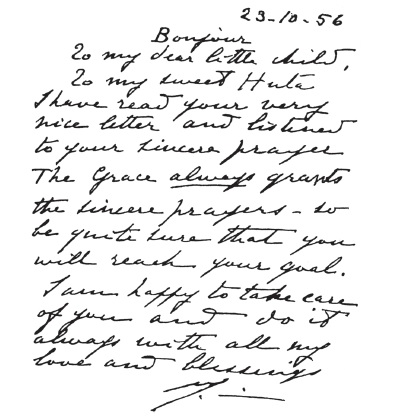 23-10-56
Bonjour
To my dear little child,
To my sweet Huta
I have read your very
nice letter and listened
to your sincere prayer
The Grace always grants
the sincere prayers - so
be quite sure that you
will reach your goal.
I am happy to take care
of you and do it
always with all my
love and blessings